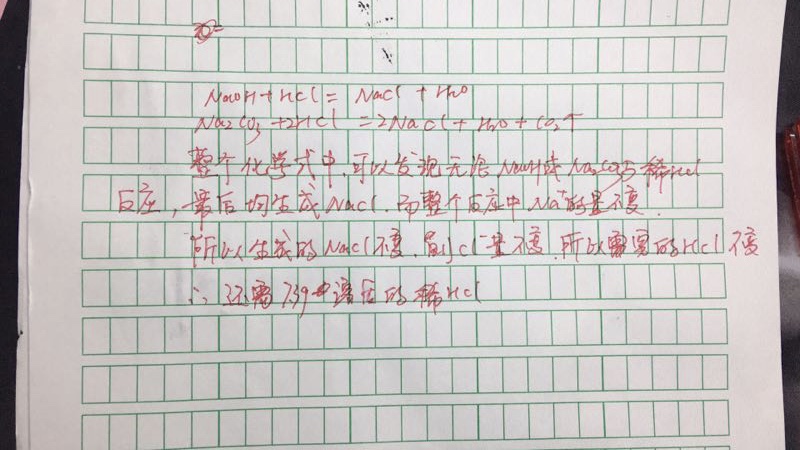 NaOH+HCl= NaCl + H₂O
Na₂CO₃ +2HCl =2NaCl+ H₂O + CO₂↑
整个化学式中,可以发现无论NaOH或Na₂CO₃与稀HCl
反应,最后均生成NaCl.而整个反应中Na⁺的量不变.
所以生成的NaCl不变.则Cl⁻量不变.所以需要的HCl不变
∴还需73g 后的稀HCl